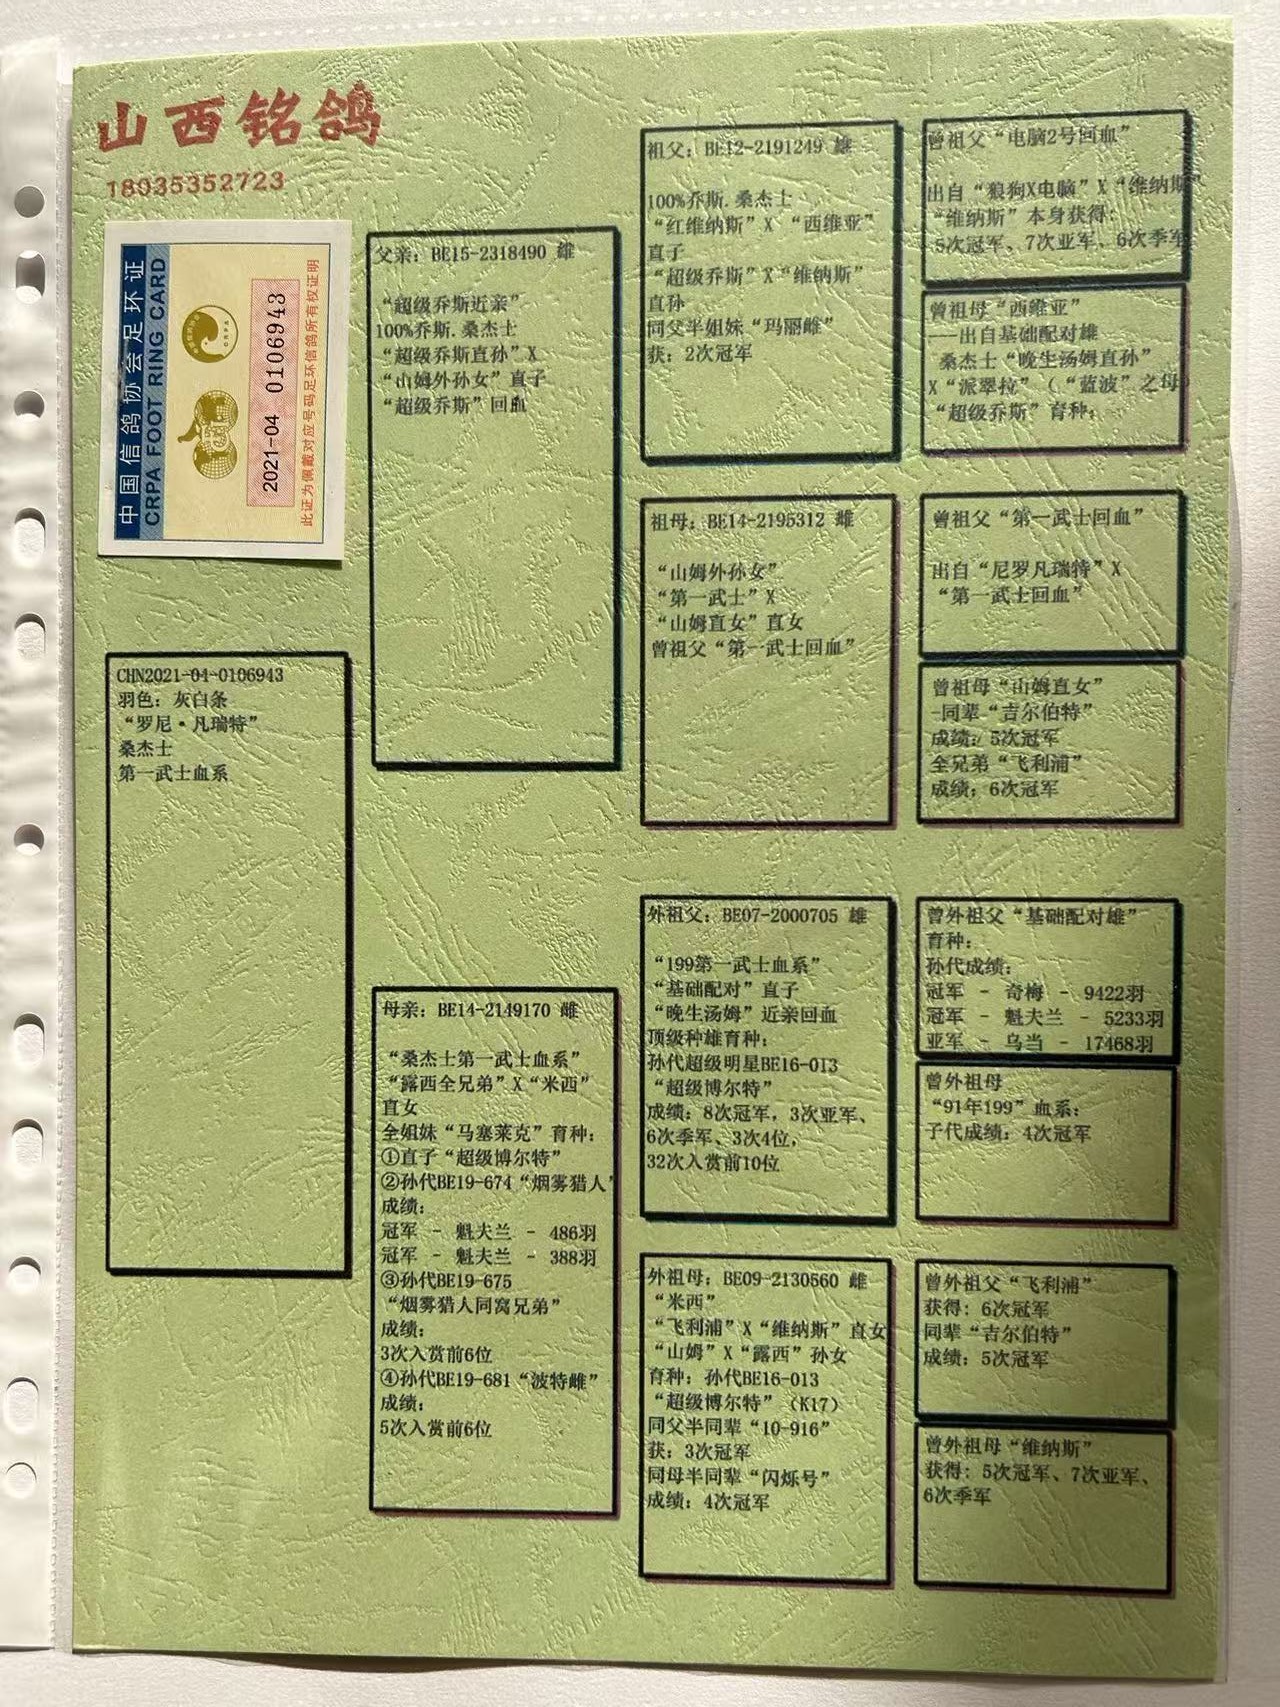 山西铭鸽
18035352723
中国信鸽协会足环证
CRPA FOOT RING CARD
2021-04 0106943
此证为佩戴对应号码足环信鸽所有权证明
CHN2021-04-0106943
羽色：灰白条
“罗尼·凡瑞特”
桑杰士
第一武士血系
父亲：BE15-2318490 雄
“超级乔斯近亲”
100%乔斯.桑杰士
“超级乔斯直孙”X
“山姆外孙女”直子
“超级乔斯”回血
母亲：BE14-2149170 雌
“桑杰士第一武士血系”
“露西全兄弟”X“米西”
直女
全姐妹“马塞莱克”育种：
①直子“超级博尔特”
②孙代BE19-674“烟雾猎人”
成绩：
冠军 - 魁夫兰 - 486羽
冠军 - 魁夫兰 - 388羽
③孙代BE19-675
“烟雾猎人同窝兄弟”
成绩：
3次入赏前6位
④孙代BE19-681“波特雌”
成绩：
5次入赏前6位
祖父：BE12-2191249 雄
100%乔斯.桑杰士
“红维纳斯”X “西维亚”
直子
“超级乔斯”X“维纳斯”
直孙
同父半姐妹“玛丽雌”
获：2次冠军
祖母：BE14-2195312 雌
“山姆外孙女”
“第一武士”X
“山姆直女”直女
曾祖父“第一武士回血”
外祖父：BE07-2000705 雄
“199第一武士血系”
“基础配对”直子
“晚生汤姆”近亲回血
顶级种雄育种：
孙代超级明星BE16-013
“超级博尔特”
成绩：8次冠军，3次亚军、
6次季军、3次4位，
32次入赏前10位
外祖母：BE09-2130560 雌
“米西”
“飞利浦”X“维纳斯”直女
“山姆”X“露西”孙女
育种：孙代BE16-013
“超级博尔特”（K17）
同父半同辈“10-916”
获：3次冠军
同母半同辈“闪烁号”
成绩：4次冠军
曾祖父“电脑2号回血”
出自“狼狗X电脑”X“维纳斯”
“维纳斯”本身获得：
5次冠军、7次亚军、6次季军
曾祖母“西维亚”
---出自基础配对雄
桑杰士“晚生汤姆直孙”
X“派翠拉”（“蓝波”之母）
“超级乔斯”育种；
曾祖父“第一武士回血”
出自“尼罗凡瑞特”X
“第一武士回血”
曾祖母“山姆直女”
-同辈“吉尔伯特”
成绩：5次冠军
全兄弟“飞利浦”
成绩：6次冠军
曾外祖父“基础配对雄”
育种：
孙代成绩：
冠军 - 奇梅 - 9422羽
冠军 - 魁夫兰 - 5233羽
亚军 - 乌当 - 17468羽
曾外祖母
“91年199”血系；
子代成绩：4次冠军
曾外祖父“飞利浦”
获得：6次冠军
同辈“吉尔伯特”
成绩：5次冠军
曾外祖母“维纳斯”
获得：5次冠军、7次亚军、
6次季军